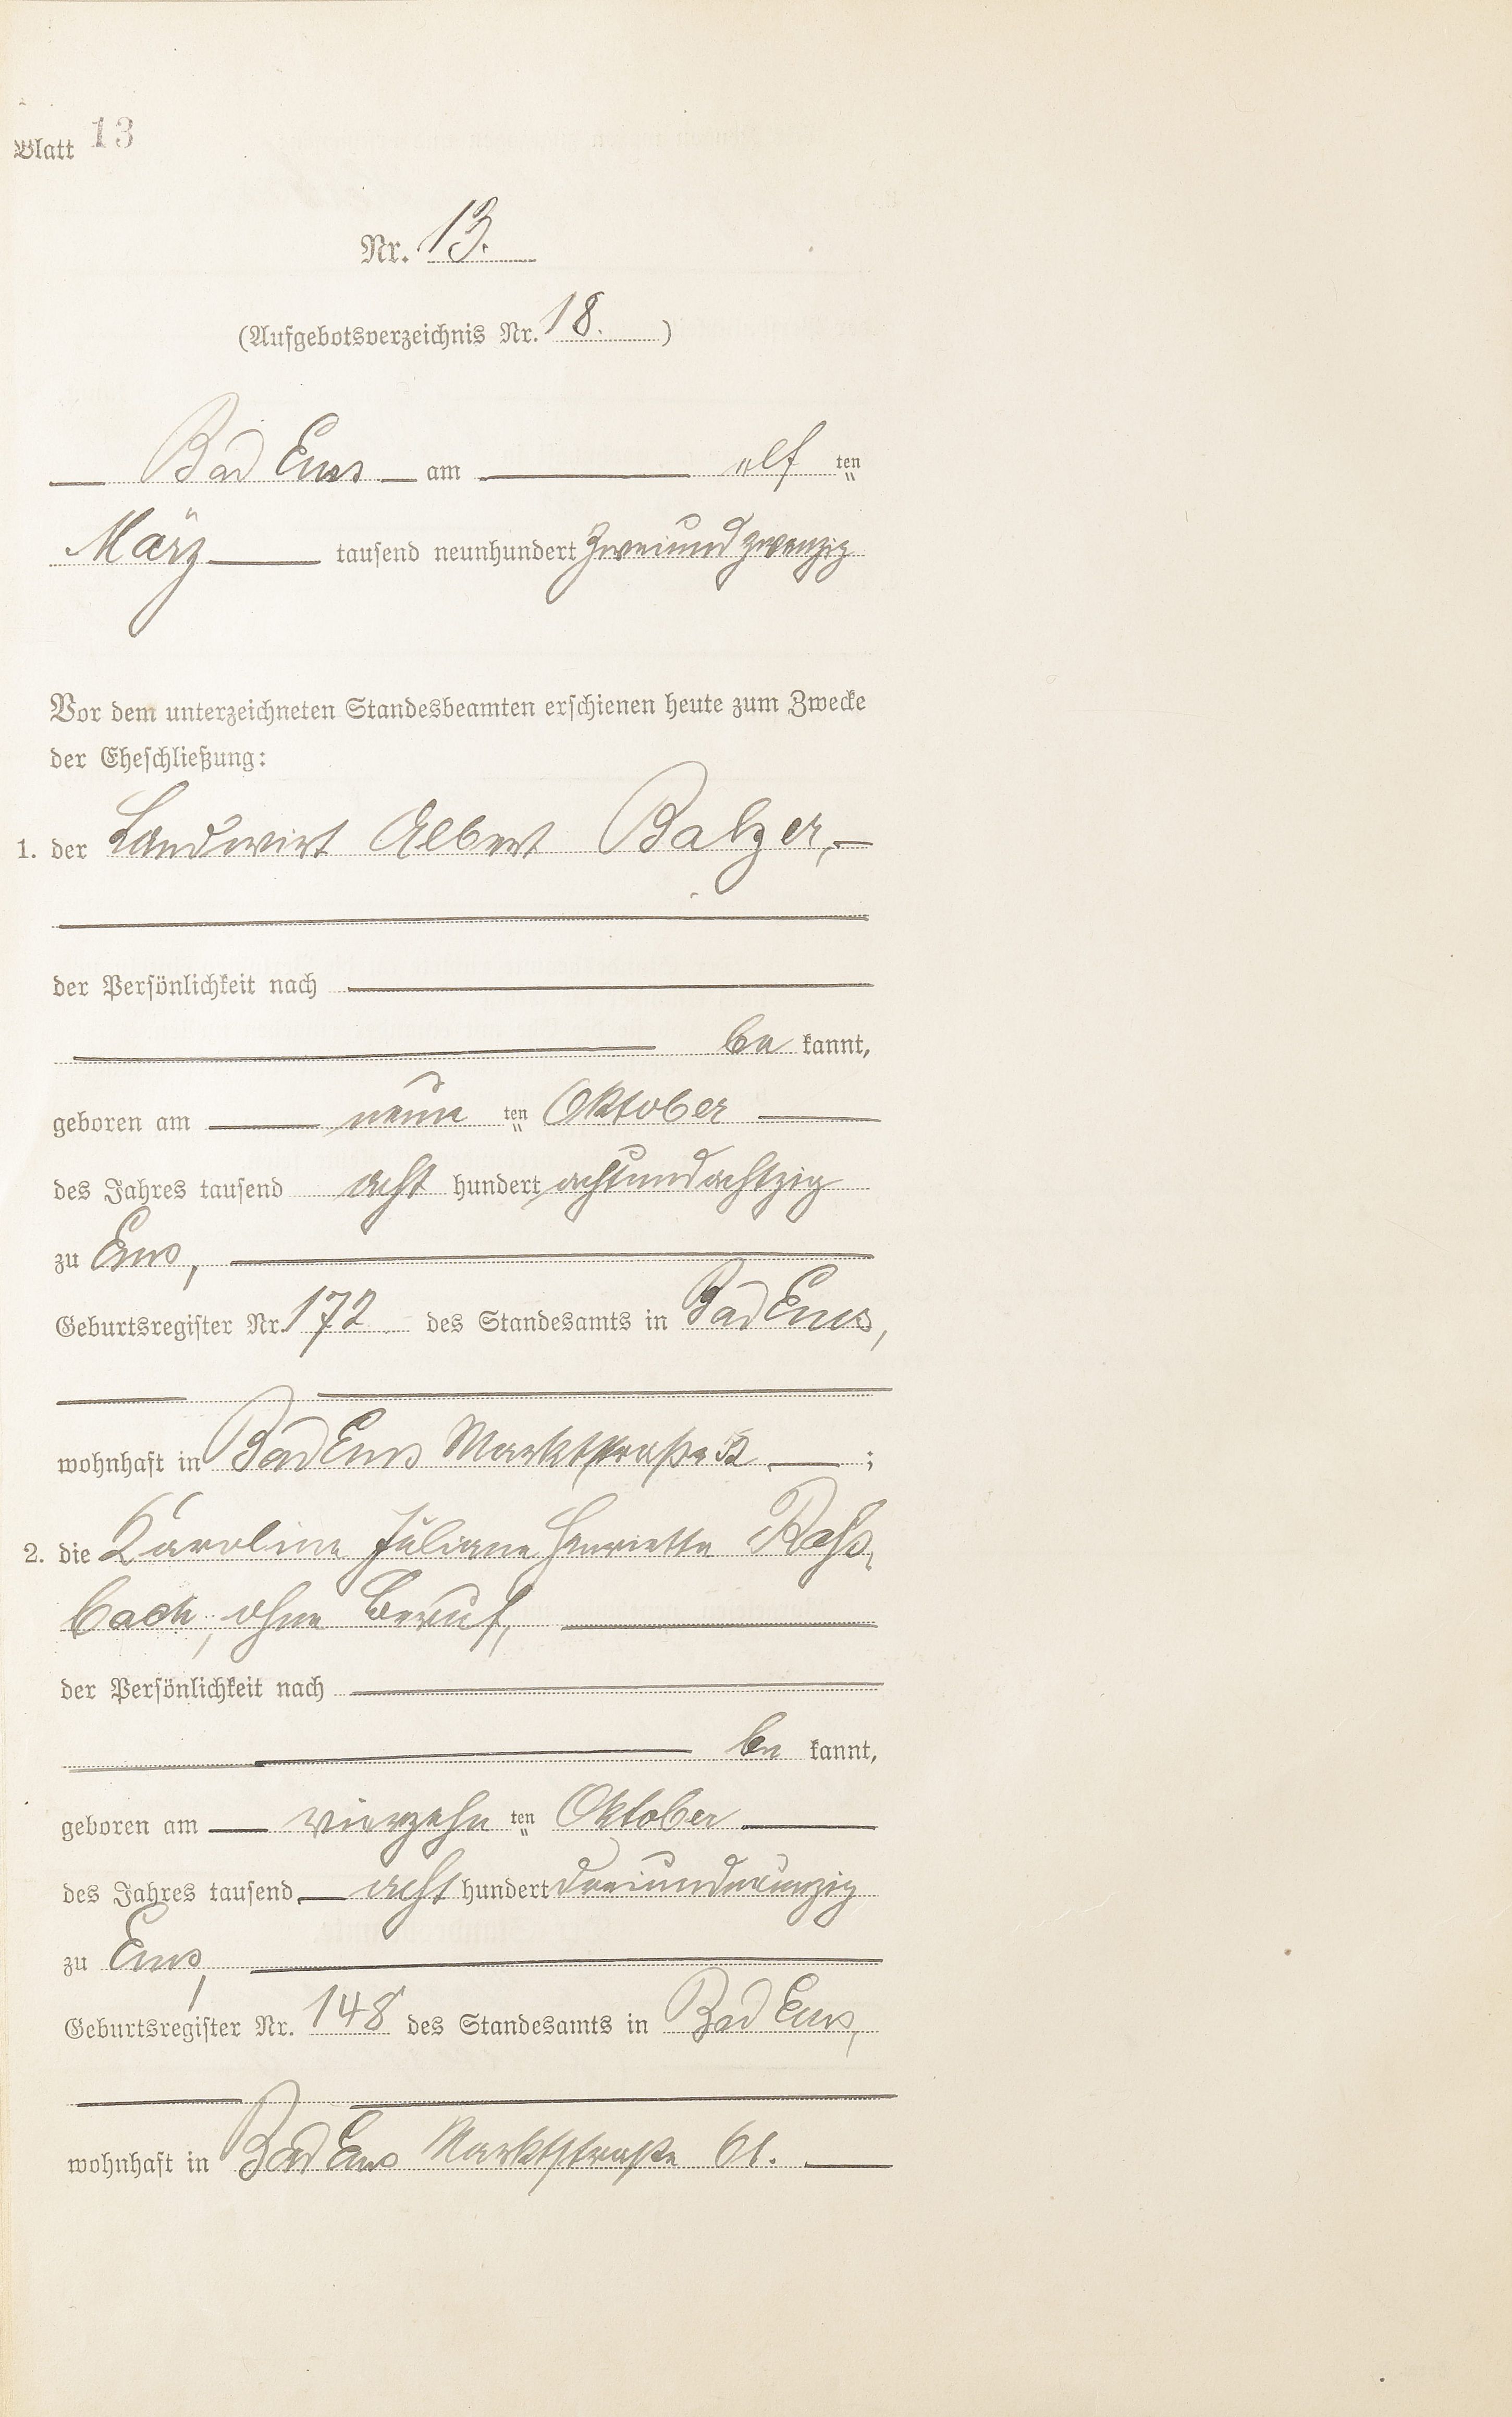 Blatt 13
Nr. 13.
(Aufgebotsverzeichnis Nr. 18. )
Bad Ems am elf ten
März tausend neunhundert zweiundzwanzig
Vor dem unterzeichneten Standesbeamten erschienen heute zum Zwecke
der Eheschließung:
1. der Landwirt Albert Balzer,
der Persönlichkeit nach
be kannt,
geboren am neun ten Oktober
des Jahres tausend acht hundert achtundachtzig
zu Ems,
Geburtsregister Nr. 172 des Standesamts in Bad Ems,
wohnhaft in Bad Ems Marktstraße 52 ;
2. die Karoline Juliane Henriette
bach, ohne Beruf,
der Persönlichkeit nach
be kannt,
geboren am vierzehn ten Oktober
des Jahres tausend acht hundert dreiundneunzig
zu Ems,
Geburtsregister Nr. 148 des Standesamts in Bad Ems,
wohnhaft in Bad Ems Marktstraße 61.